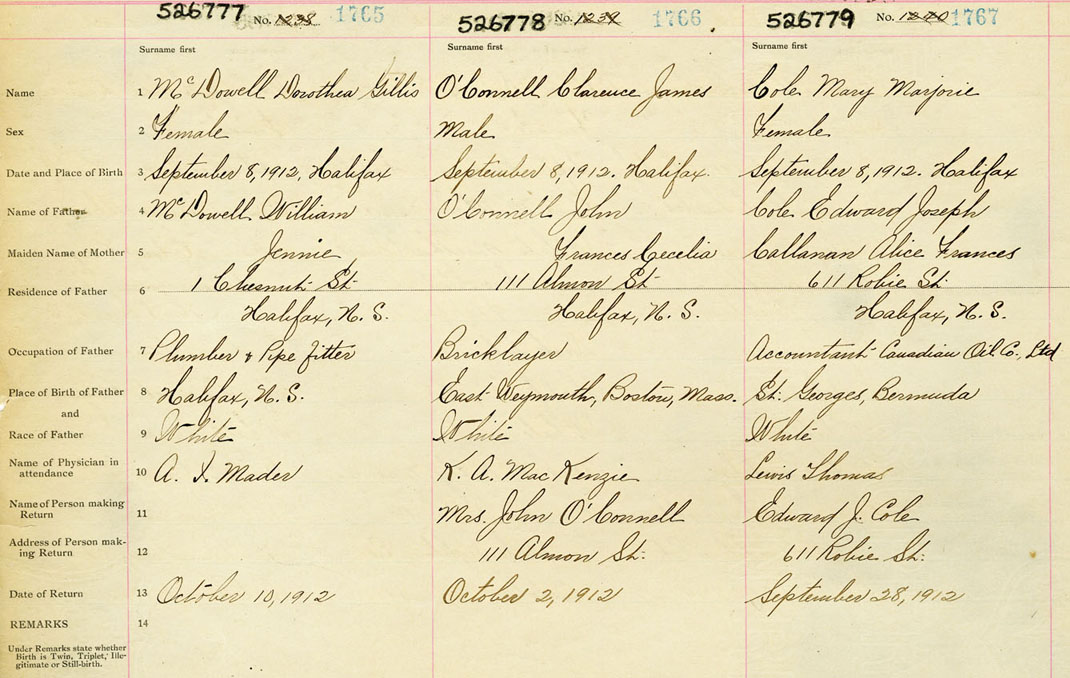 526777 No. 1238 1765
526778 No. 1239 1766
526779 No. 1240 1767
Surname first Surname first Surname first
Name 1 McDowell Dorothea Gillis O'Connell Clarence James Cole Mary Marjorie
Sex 2 Female Male Female
Date and Place of Birth 3 September 8, 1912, Halifax September 8, 1912. Halifax. September 8, 1912. Halifax
Name of Father 4 McDowell William O'Connell John Cole Edward Joseph
Maiden Name of Mother 5 Jennie Frances Cecelia Callanan Alice Frances
Residence of Father 6 1 Chesnut St. 111 Almon St. 611 Robie St.
Halifax, N. S. Halifax, N. S. Halifax, N. S.
Occupation of Father 7 Plumber & Pipe fitter Bricklayer Accountant Canadian Oil Co., Ltd
Place of Birth of Father 8 Halifax, N. S. East Weymouth, Boston, Mass. St. Georges, Bermuda
and
Race of Father 9 White White White
Name of Physician in
attendance 10 A. I. Mader K. A. MacKenzie Lewis Thomas
Name of Person making
Return 11 Mrs. John O'Connell Edward J. Cole
Address of Person mak-
ing Return 12 111 Almon St. 611 Robie St.
Date of Return 13 October 10, 1912 October 2, 1912 September 28, 1912
REMARKS 14
Under Remarks state whether
Birth is Twin, Triplet, Ille-
gitimate or Still-birth.